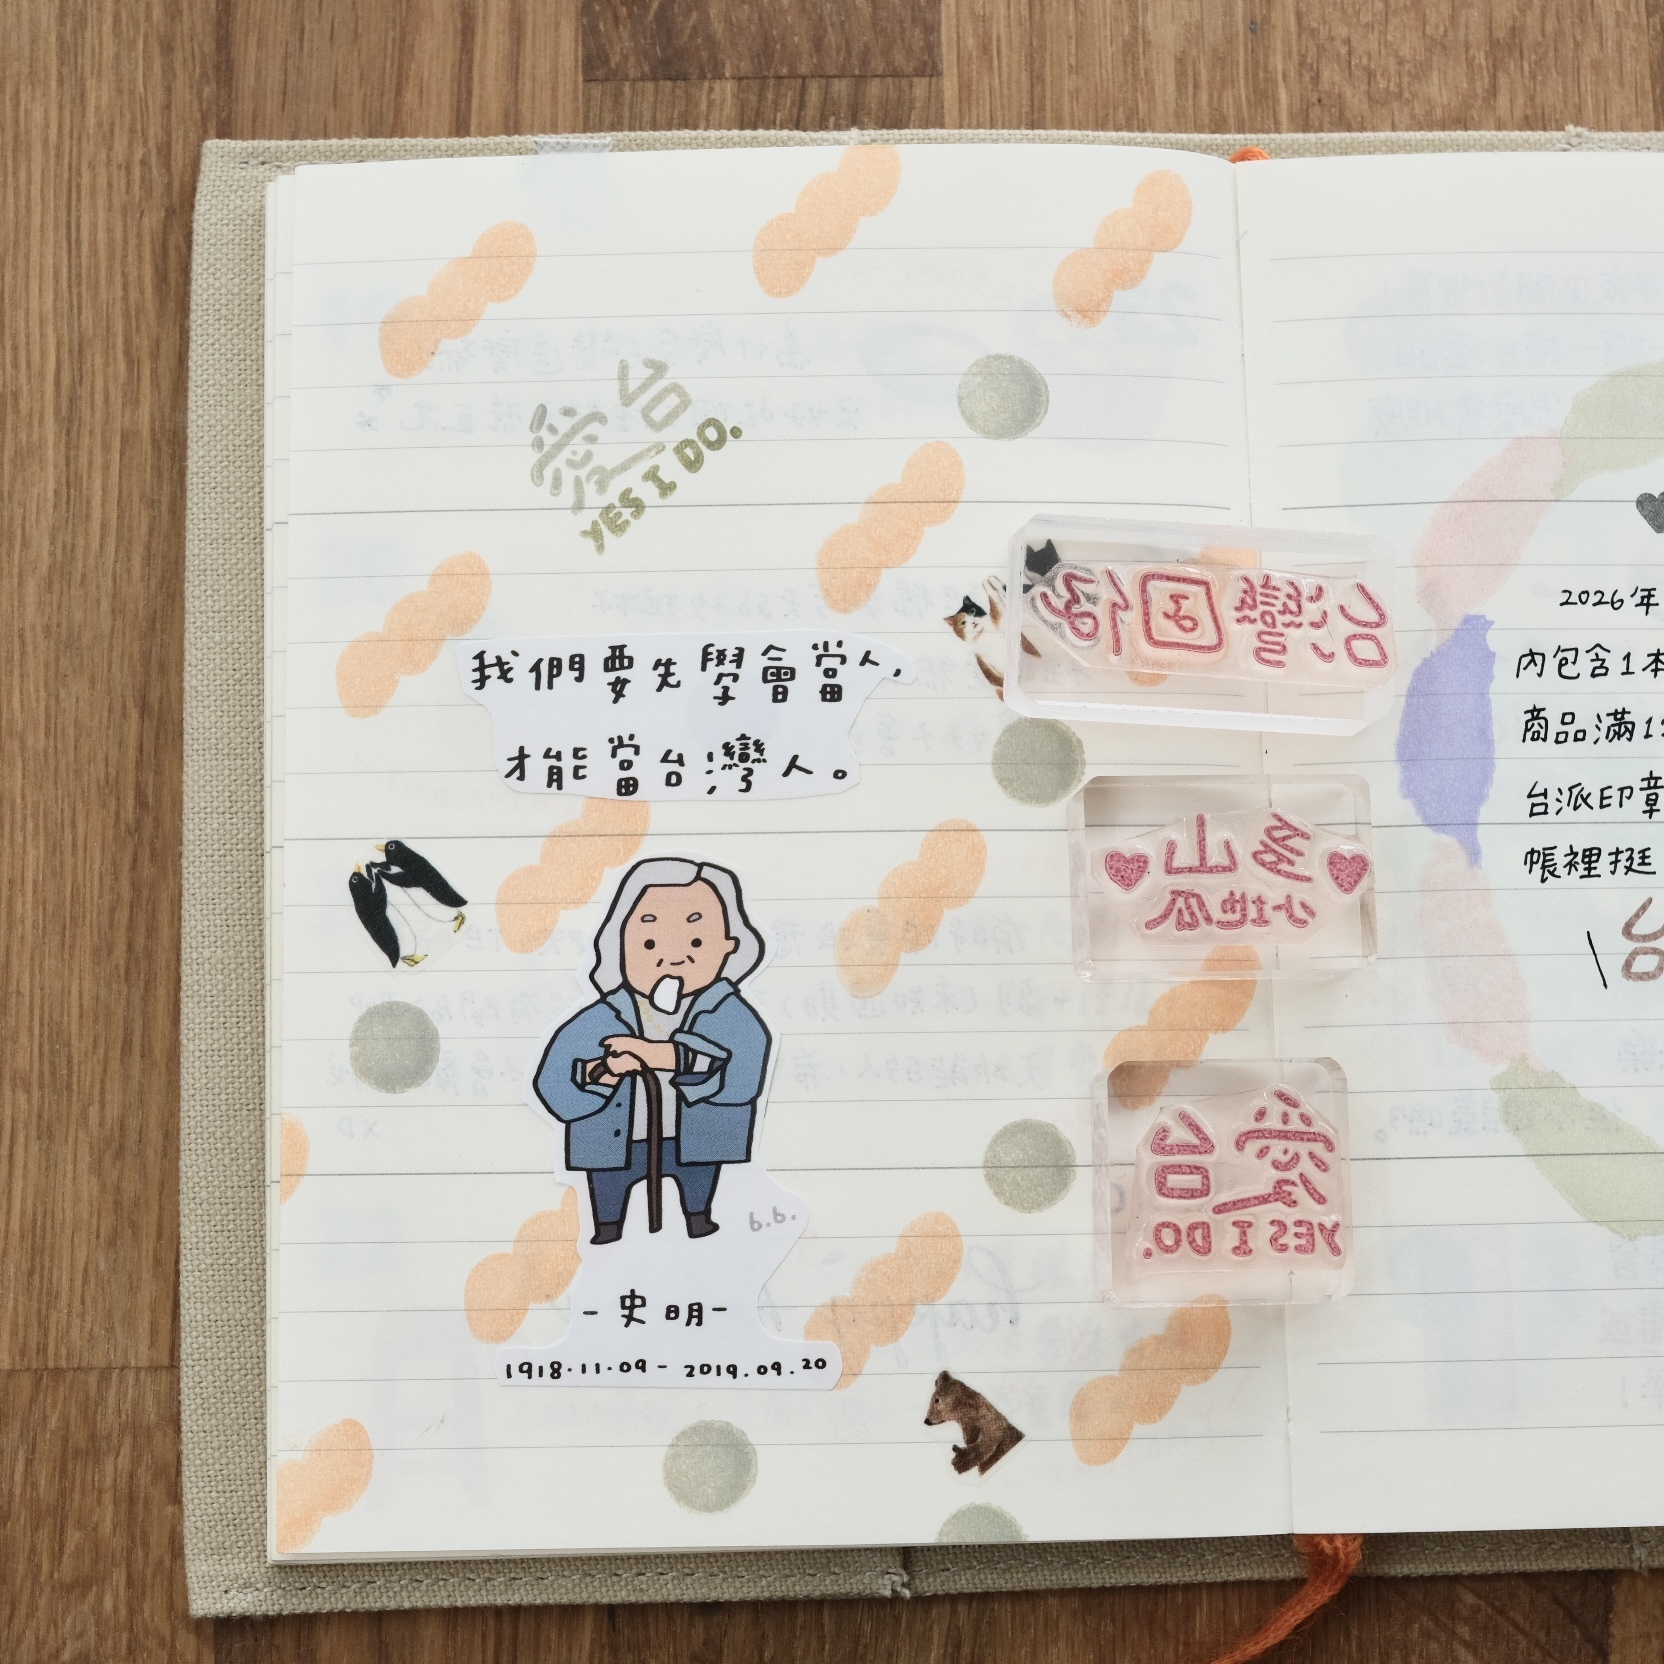 愛台
YES I DO.
我們要先學會當人,
才能當台灣人。
b.b.
-史明-
1918.11.09- 2019.09.20
台灣囝仔
多山
小地瓜
愛台
YES I DO.
2026年
內包含1本
商品滿1
台派印章
帳裡挺
台